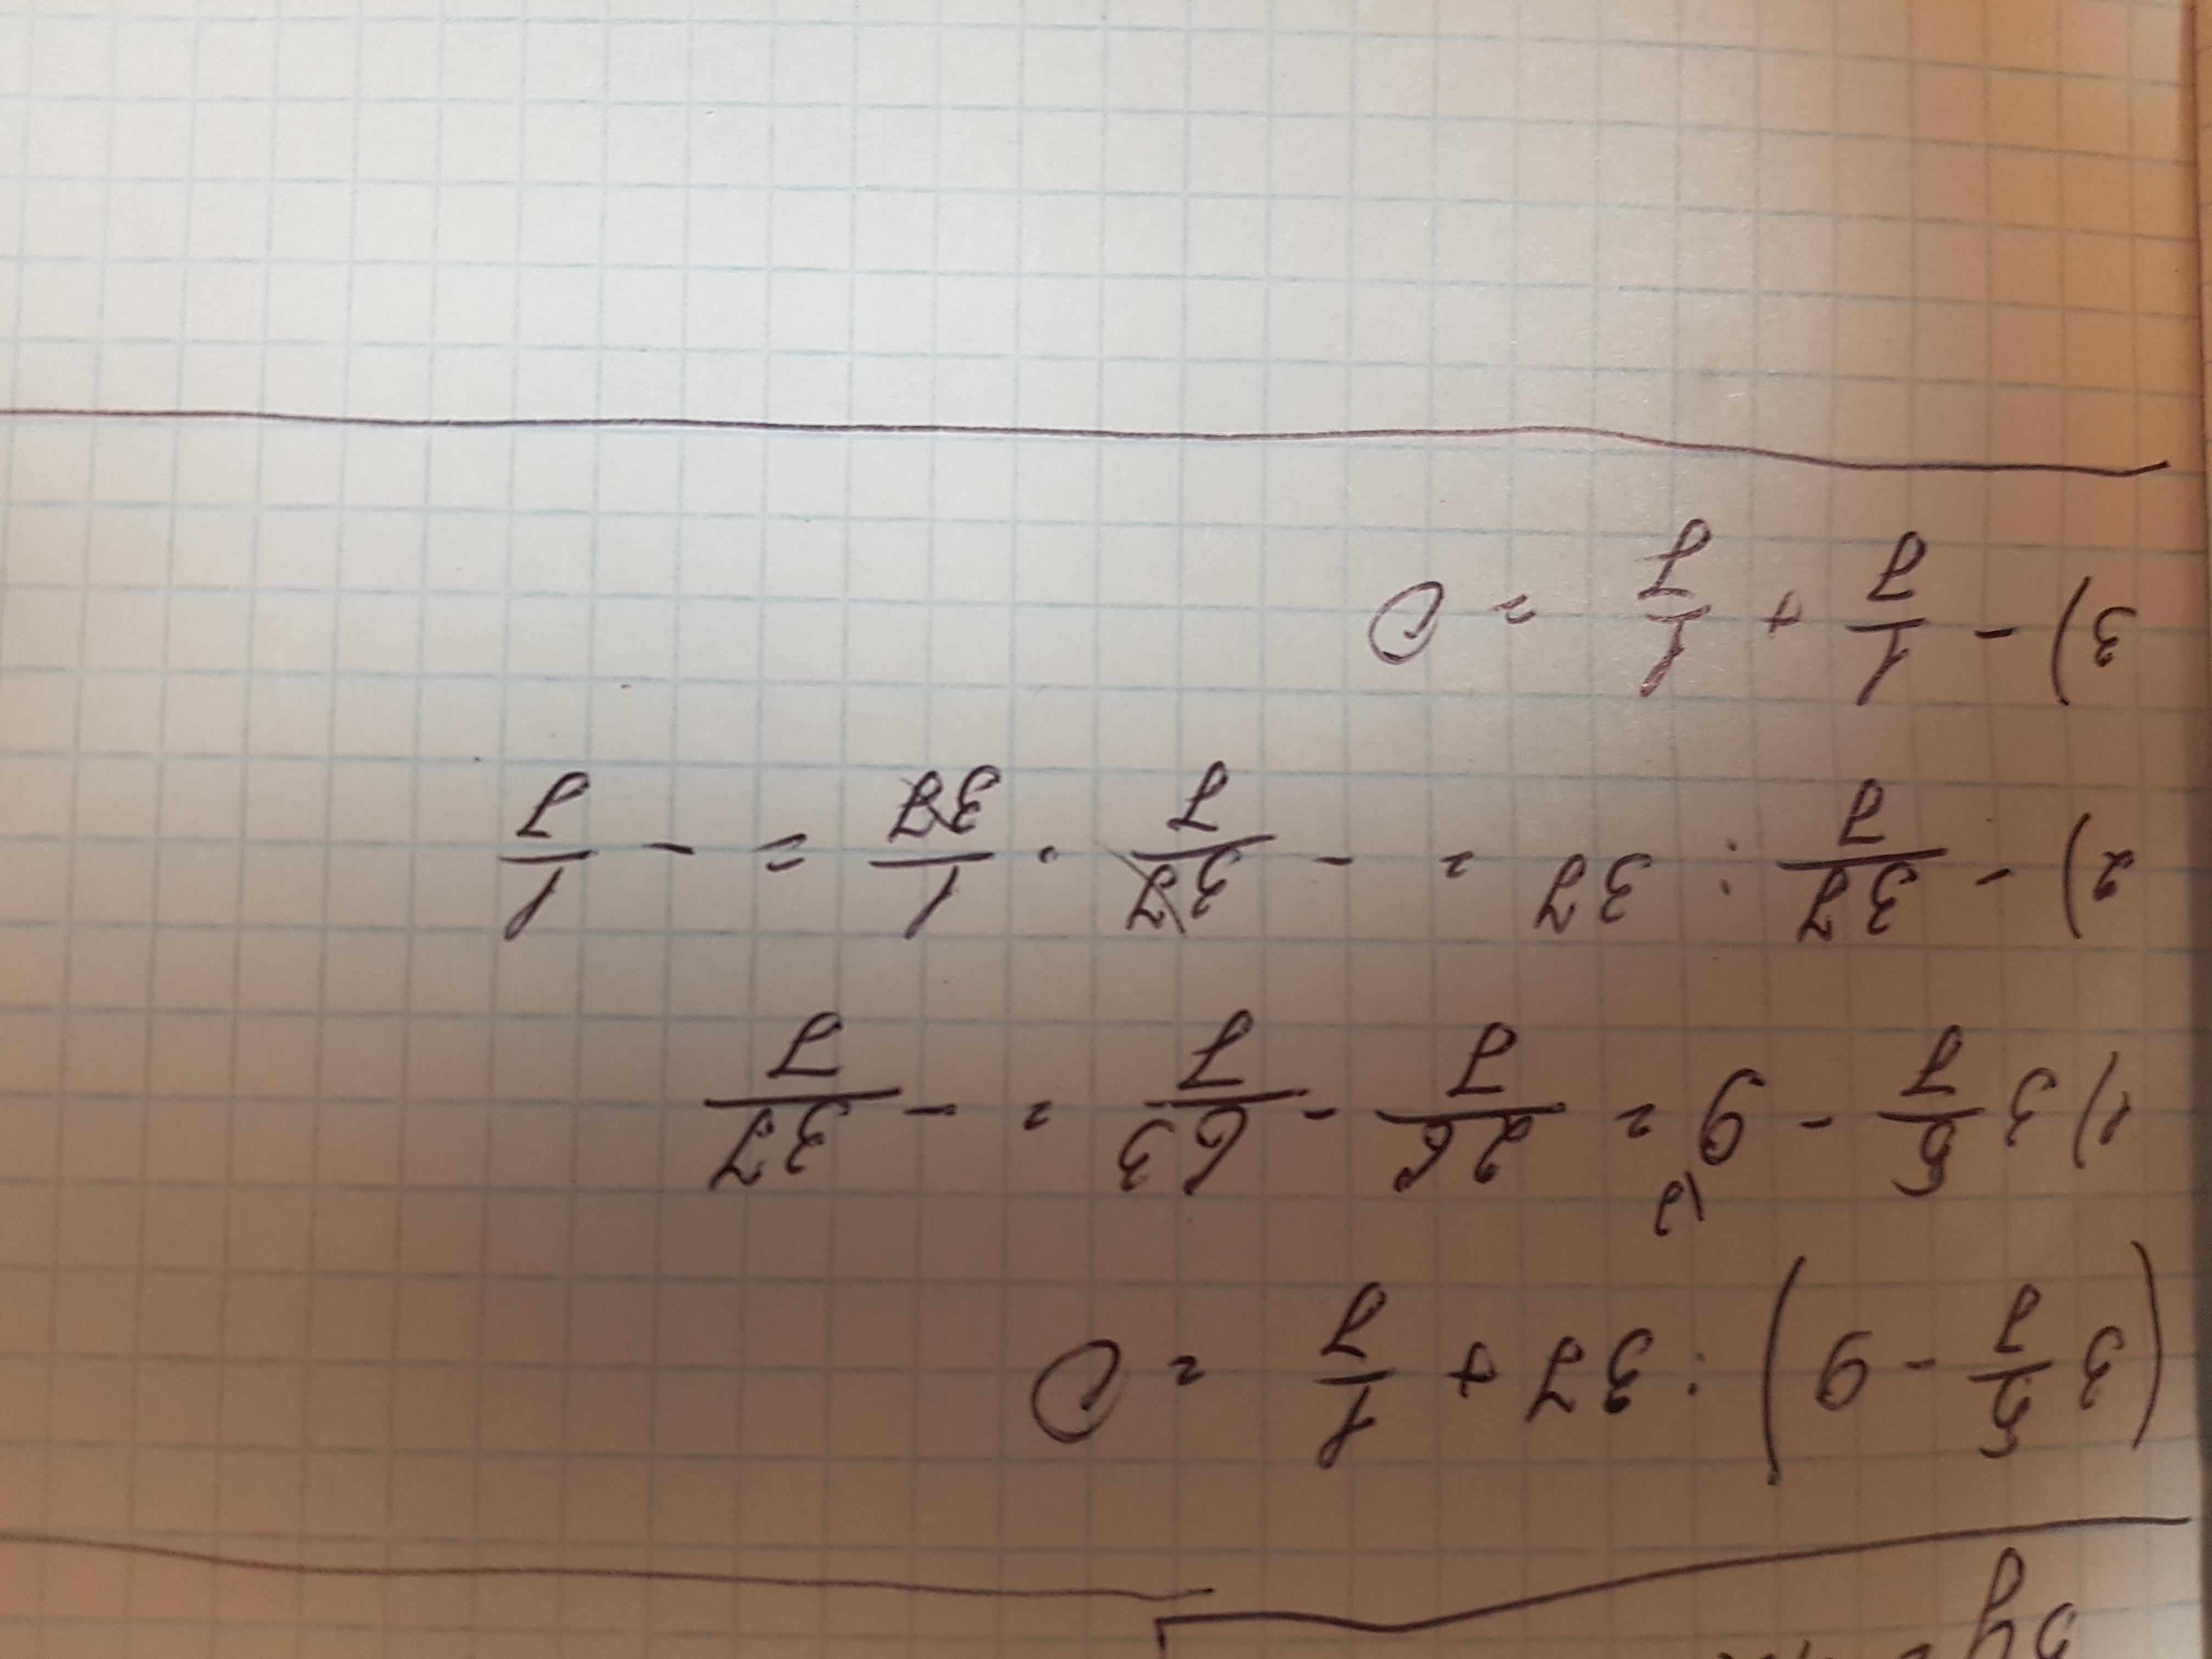 (3 5/7 - 9) : 37 + 1/7 = 0
1) 3 5/7 - 9 \7 = 26/7 - 63/7 = - 37/7
2) - 37/7 : 37 = - 37/7 · 1/37 = - 1/7
3) - 1/7 + 1/7 = 0